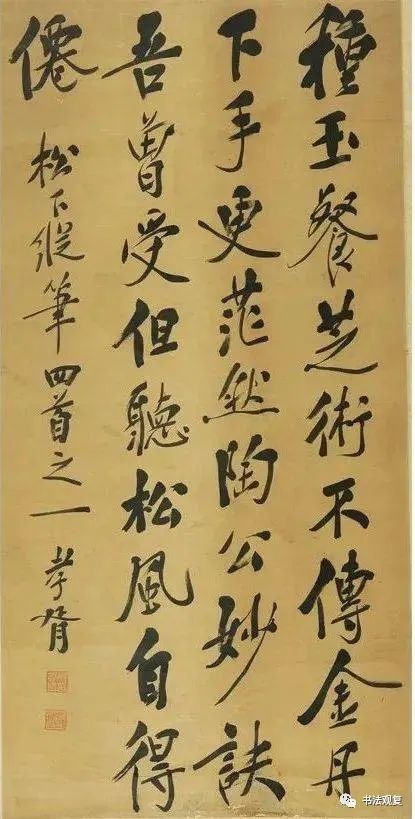 種玉餐芝術不傳金丹
下手更茫然陶公妙訣
吾曾受但聽松風自得
僊
松下縱筆四首之一 孝胥
书法观复